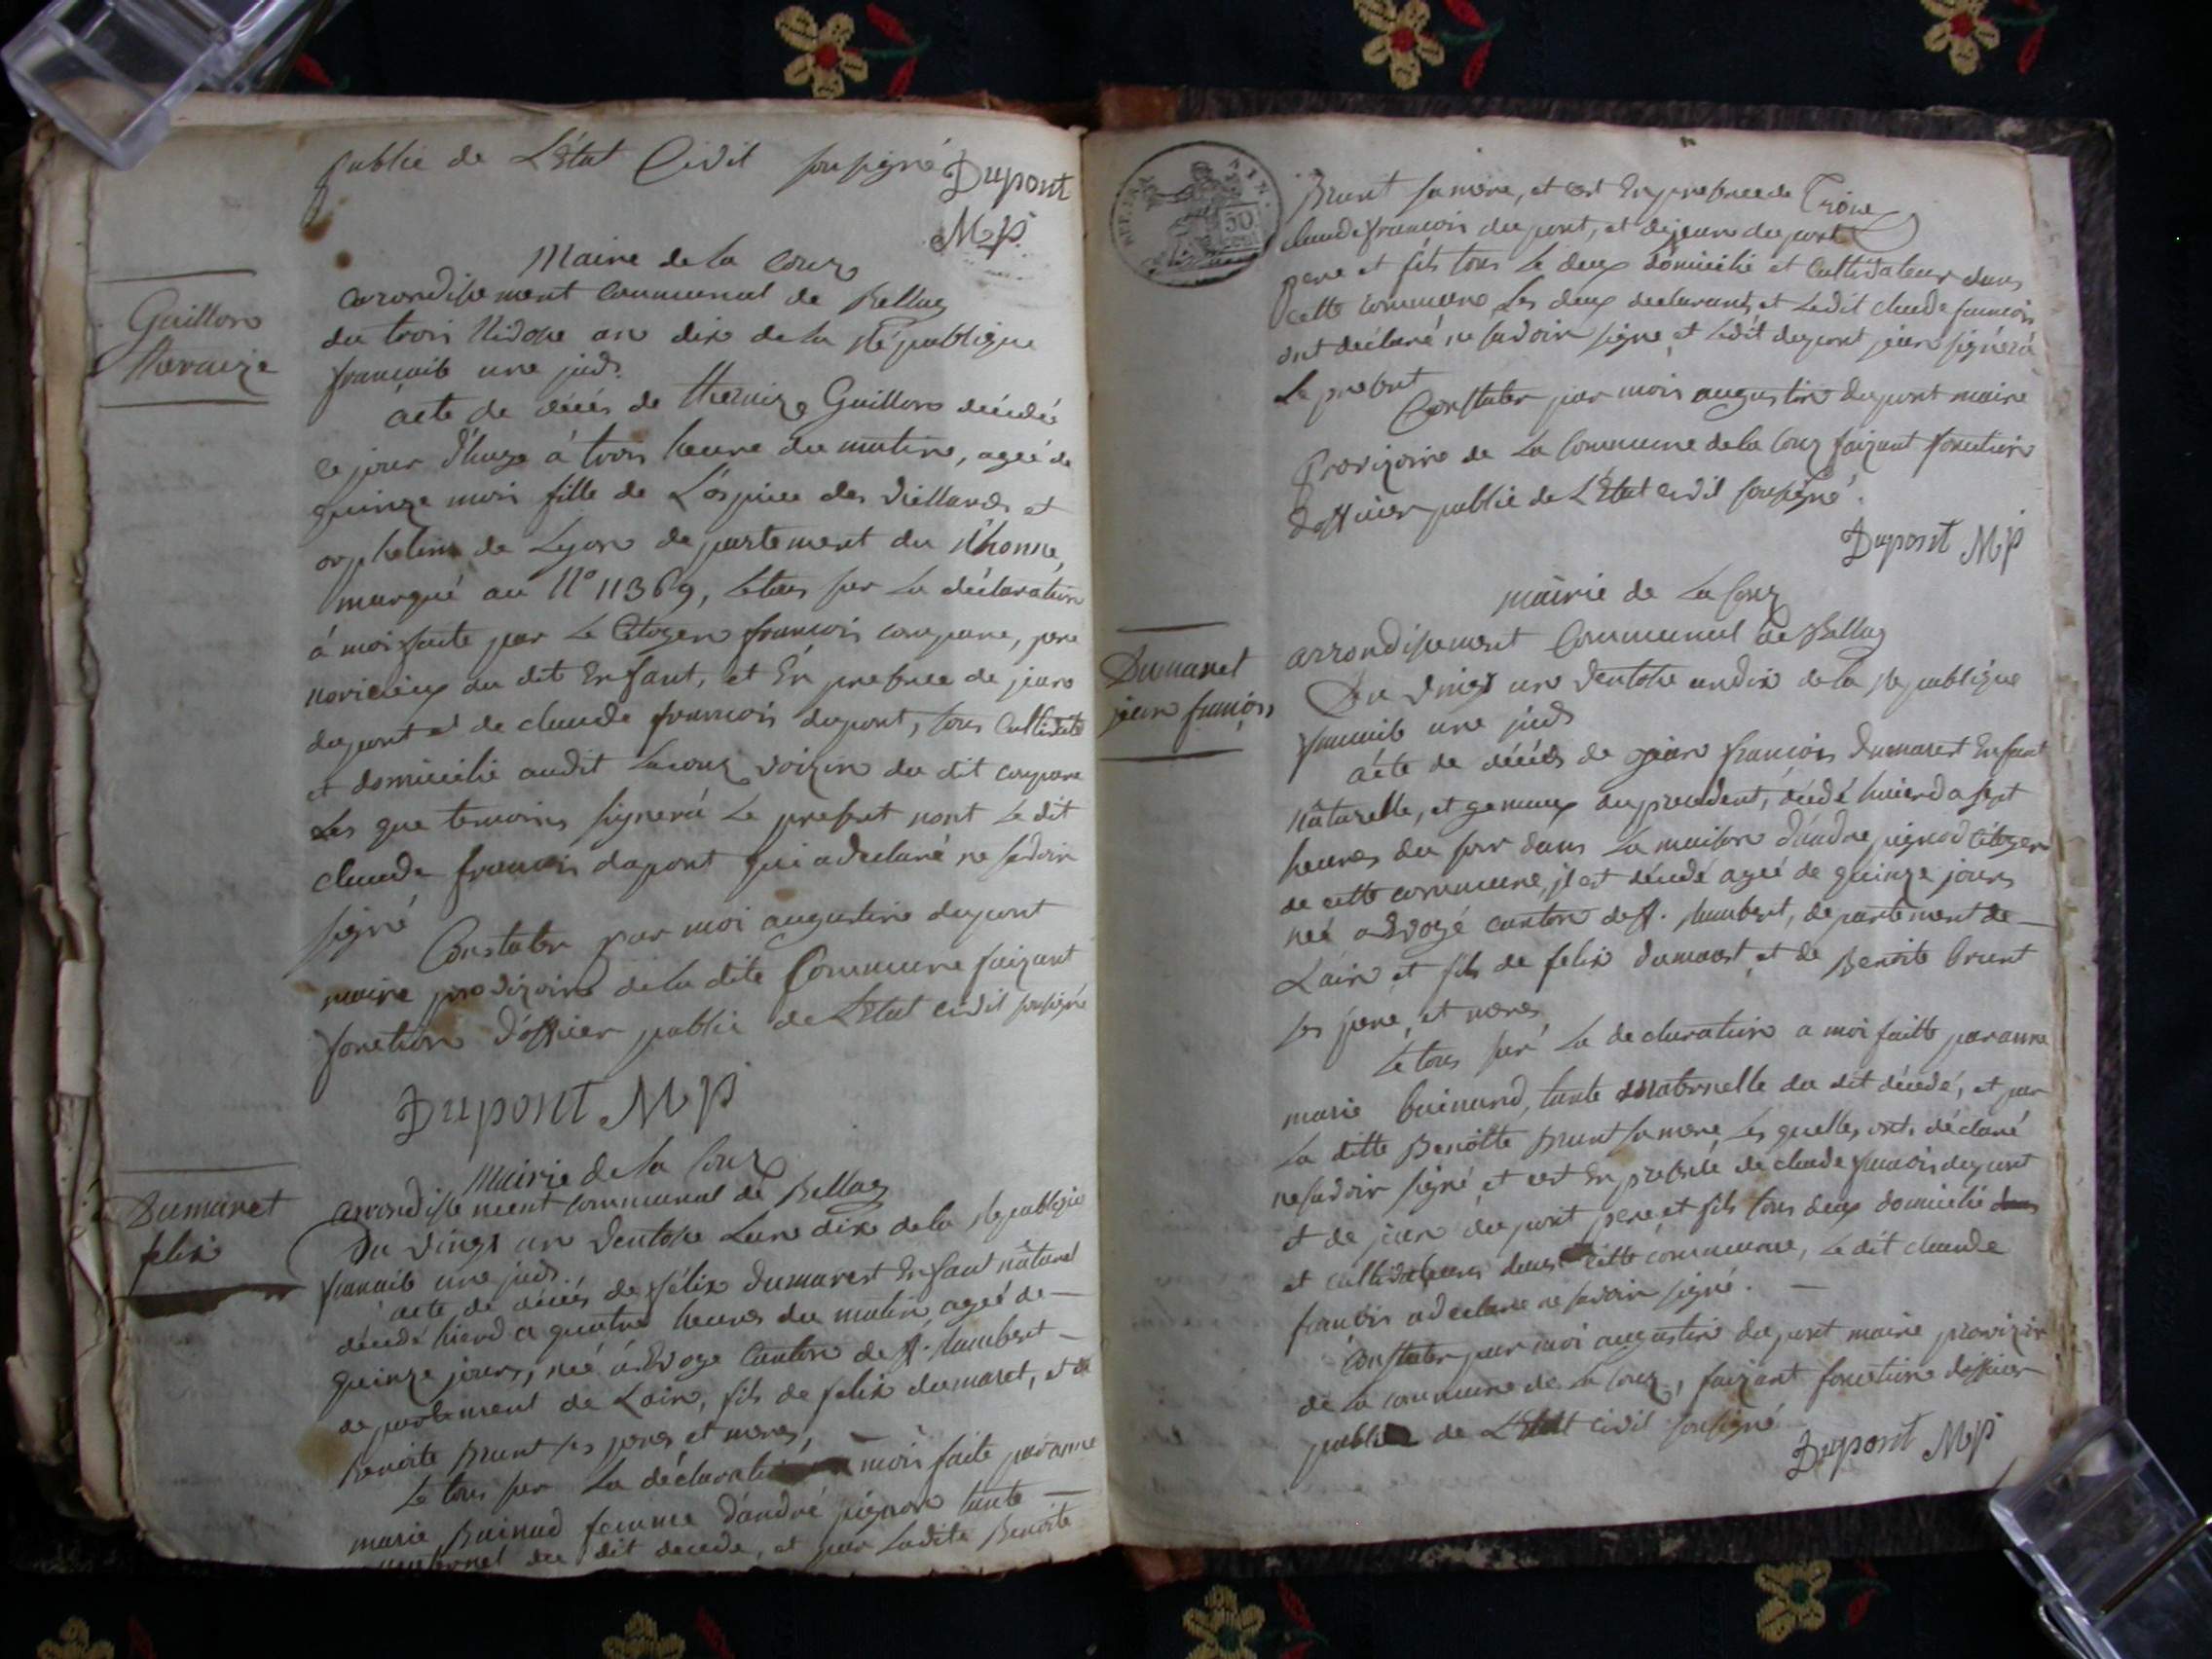 public de L'état Civil sousigné Dupont
MP
Maire de la Couz
arondisement Communal de Belley
Guillon
theraize
du trois Nivose an dix de la République
francaib une jndi
acte de décés de theraize Guillon décédée
ce jour d'huy à trois heure du matin, ageé de
quinze mois fille de L'ospice des viellards et
orphelins de Lyon departement du Rhonne,
marqué au N° 11369, Letous sur La déclaration
à moi faite par Le Citoyen francois compare, pere
noricieux du dit Enfant, et En presence de jean
dupont et de claude francois dupont, tous Cultivate
et domicilié audit Lacouz voizin du dit compare
Les que temoins signera Le present nont Le dit
claude francois dupont qui a declaré ne savoir
signé
Constater par moi augustin dupont
maire provizoire de la dite Commune faizant
fonction d'officier public de L'Etat civil sousigné
Dupont MP
Mairie de la Couz
arondisement communal de Belley
Dumaret
felix
Du vingt un Ventose Lan dix de la Republique
francaib une jndi
acte de décés de félix dumarest Enfant nâturel
décédé hierd a quatre heures du matin ageé de
quinze jours, né à Evoge Canton de St. Rambert
departement de Lain, fils de felix dumaret, et de
Benoite Brunt ses peres et meres,
Le tous sur La déclaration a moi faite par anne
marie Buinad femme d'andré pignon tante
maternel du dit décédé, et par Ladite Benoite
Brunt sa mere, et cest En presence de
claude francois dupont, et dejean dupont
pere et fils tous Le deux domicilié et Cultivateur dans
cette commune Les deux declarants, et Ledit claude francois
ont déclaré ne savoir signé et Ledit dupont jean signera
Le present
Constater par moi augustin dupont maire
Provizoire de La Commune de la Couz faizant fonction
d'officier public de L'Etat civil sousigné.
Dupont MP
mairie de La Couz
arrondisement Communal de Belley
Dumaret
jean françois
Du vingt un Ventose an dix de la Republique
francaib une jndi
acte de décés de jean francois dumarest Enfant
nâturelle, et gemeux du precedent, décédé huierd a sept
heures du soir dans La maison d'andre pignod Citoyen
de cette commune, jl est décédé ageé de quinze jours
neé a Evoge canton de St. Rambert, departement de
Lain et fils de felix dumarest, et de Benoite Brunt
ses pere, et meres,
Le tous sur La declaration a moi faitte par anne
marie buinand, tante maternelle du dit décédé, et par
La ditte Benoitte Brunt sa mere, Les quelles onts déclaré
ne savoir signé, et cest En presence de claude francois dupont
et de jean dupont pere et fils tous deux domicilié
et cultivateurs dans cette commune, Le dit claude
francois a declare ne savoir signé.
Constater par moi augustin dupont maire provizoir
de La commune de La Couz, faizant fonction d'officier
public de L'Etat civil sousigné
Dupont MP